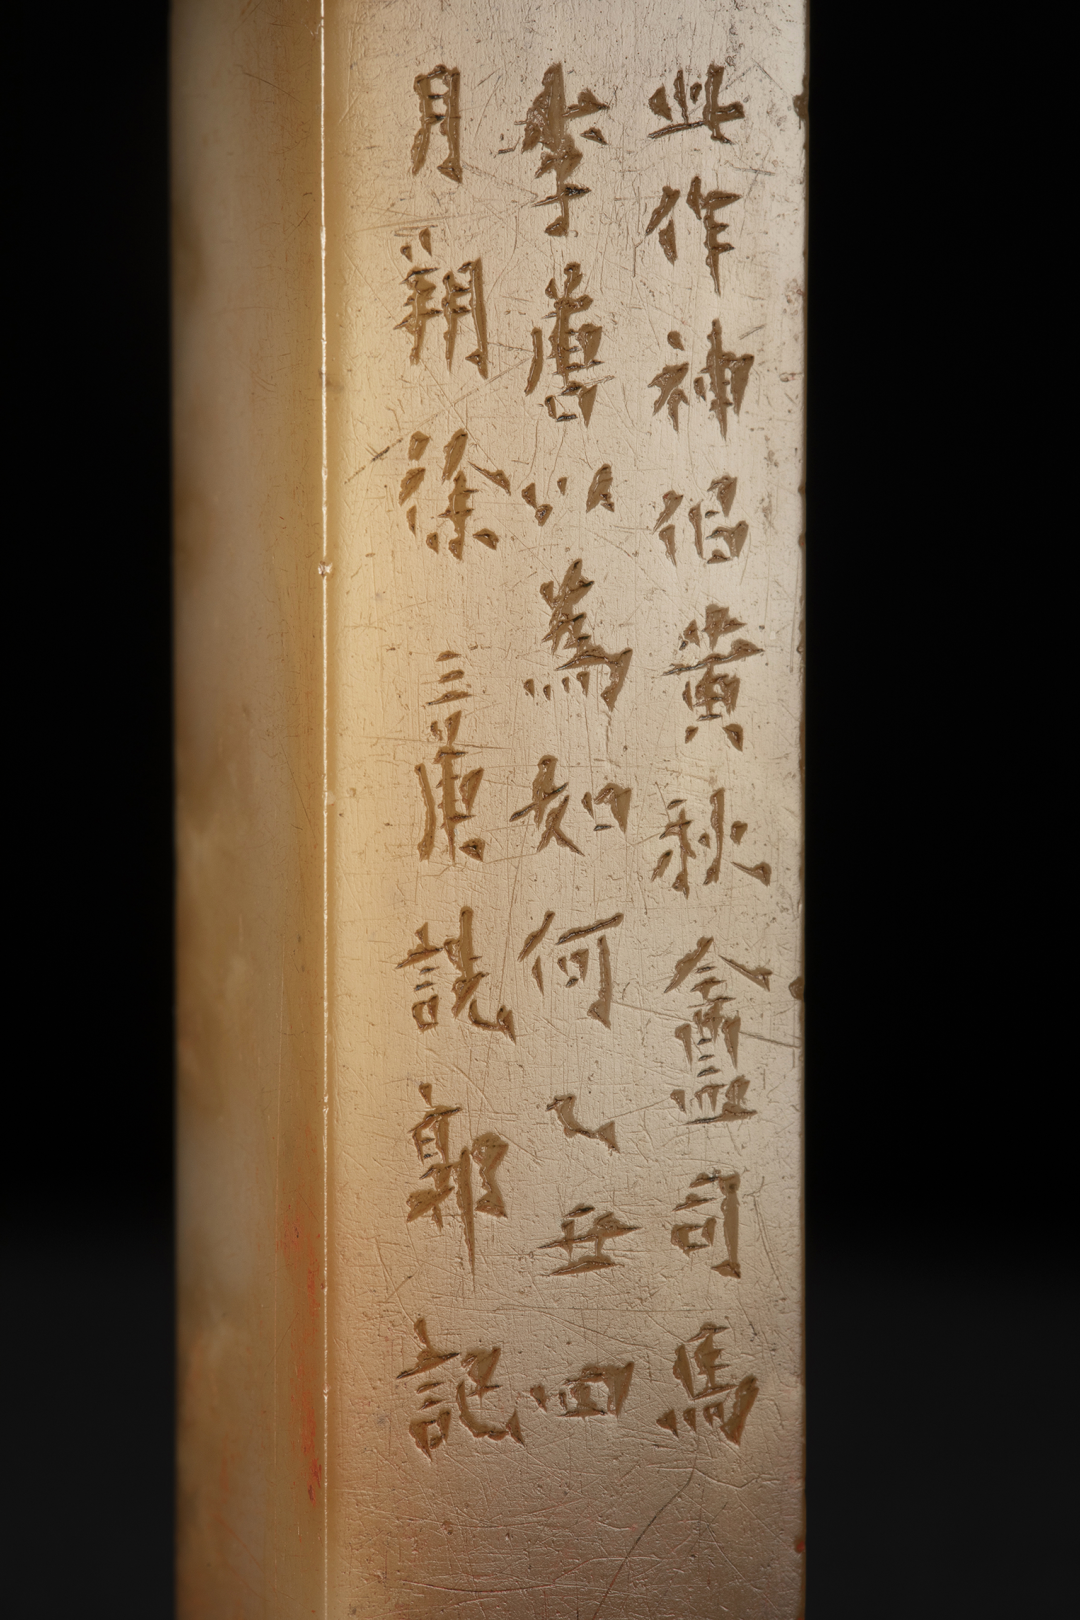 此作神佀黃秋盦司馬
季唐以為如何乙丑四
月朔徐三庚詵郭記